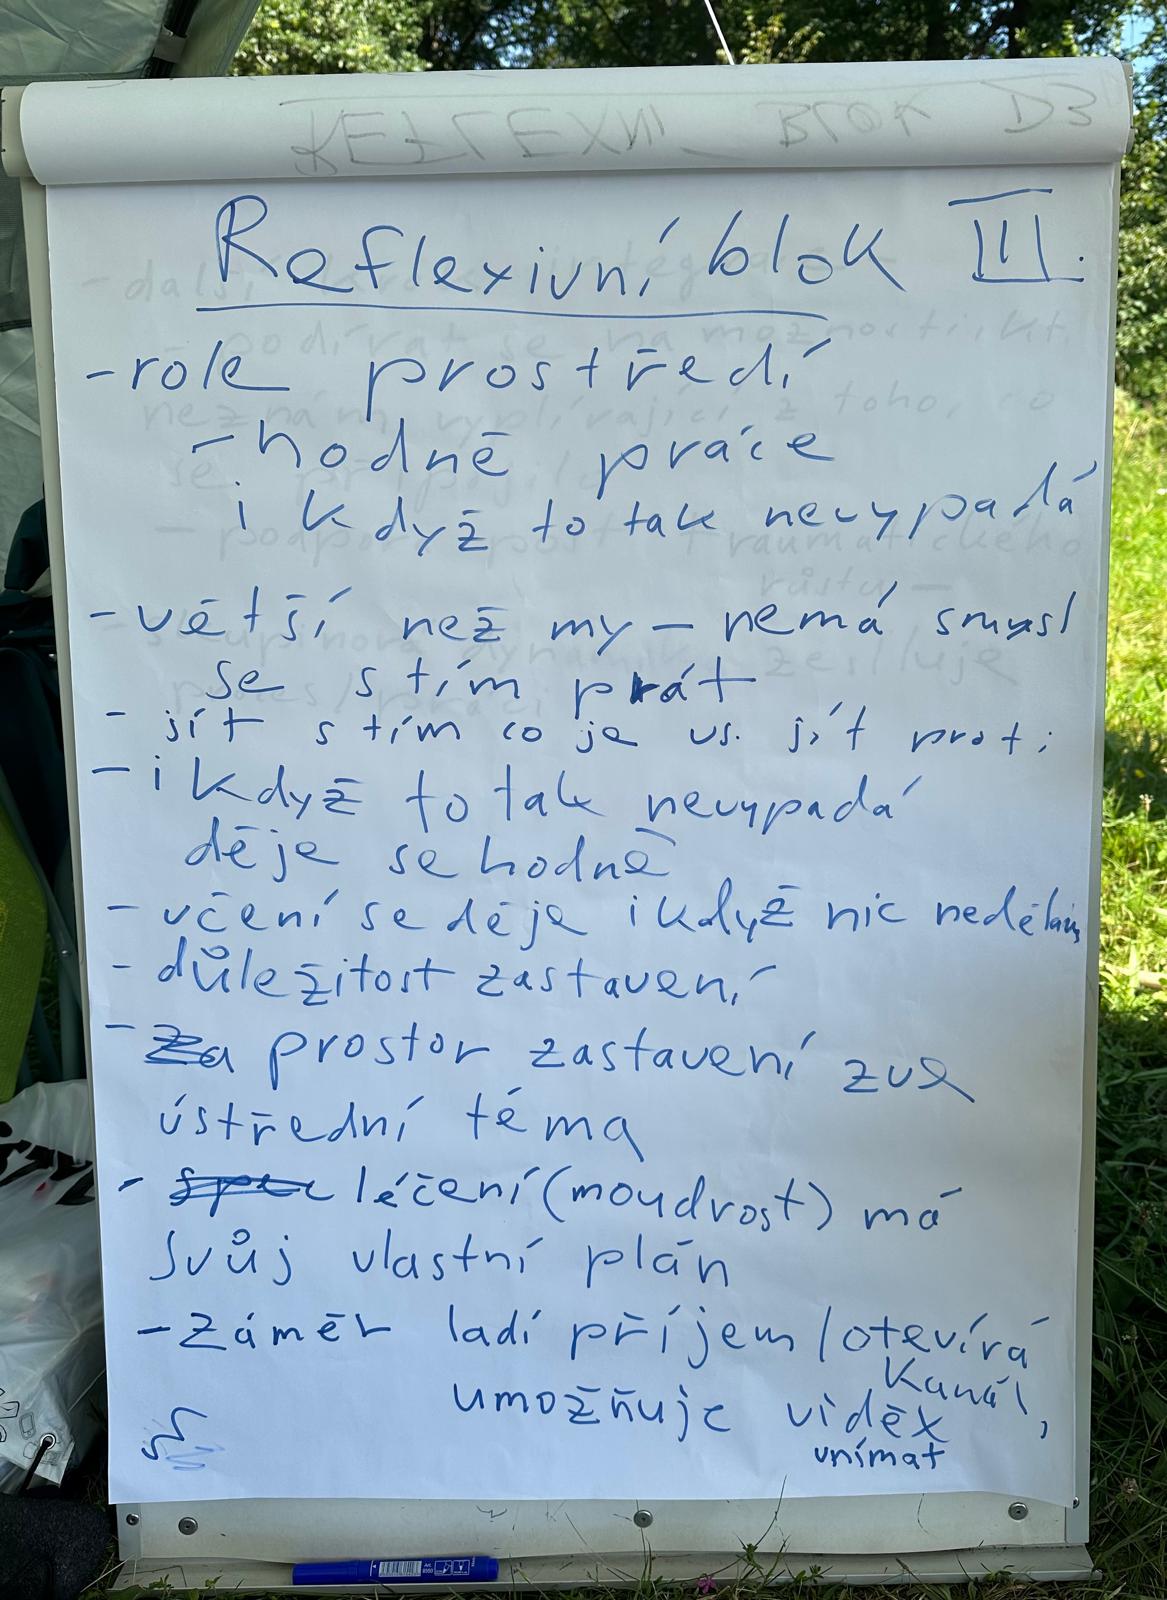 REFLEXNÍ BLOK D3
Reflexivní blok III.
- role prostředí
- hodně práce
i když to tak nevypadá
- větší než my - nemá smysl
se s tím prát
- jít s tím co je vs. jít proti
- i když to tak nevypadá
děje se hodně
- učení se děje i když nic nedělám
- důležitost zastavení
- Za prostor zastavení zve
ústřední téma
- léčení (moudrost) má
svůj vlastní plán
- záměr ladí příjem / otevírá
kanál,
umožňuje vidět
vnímat